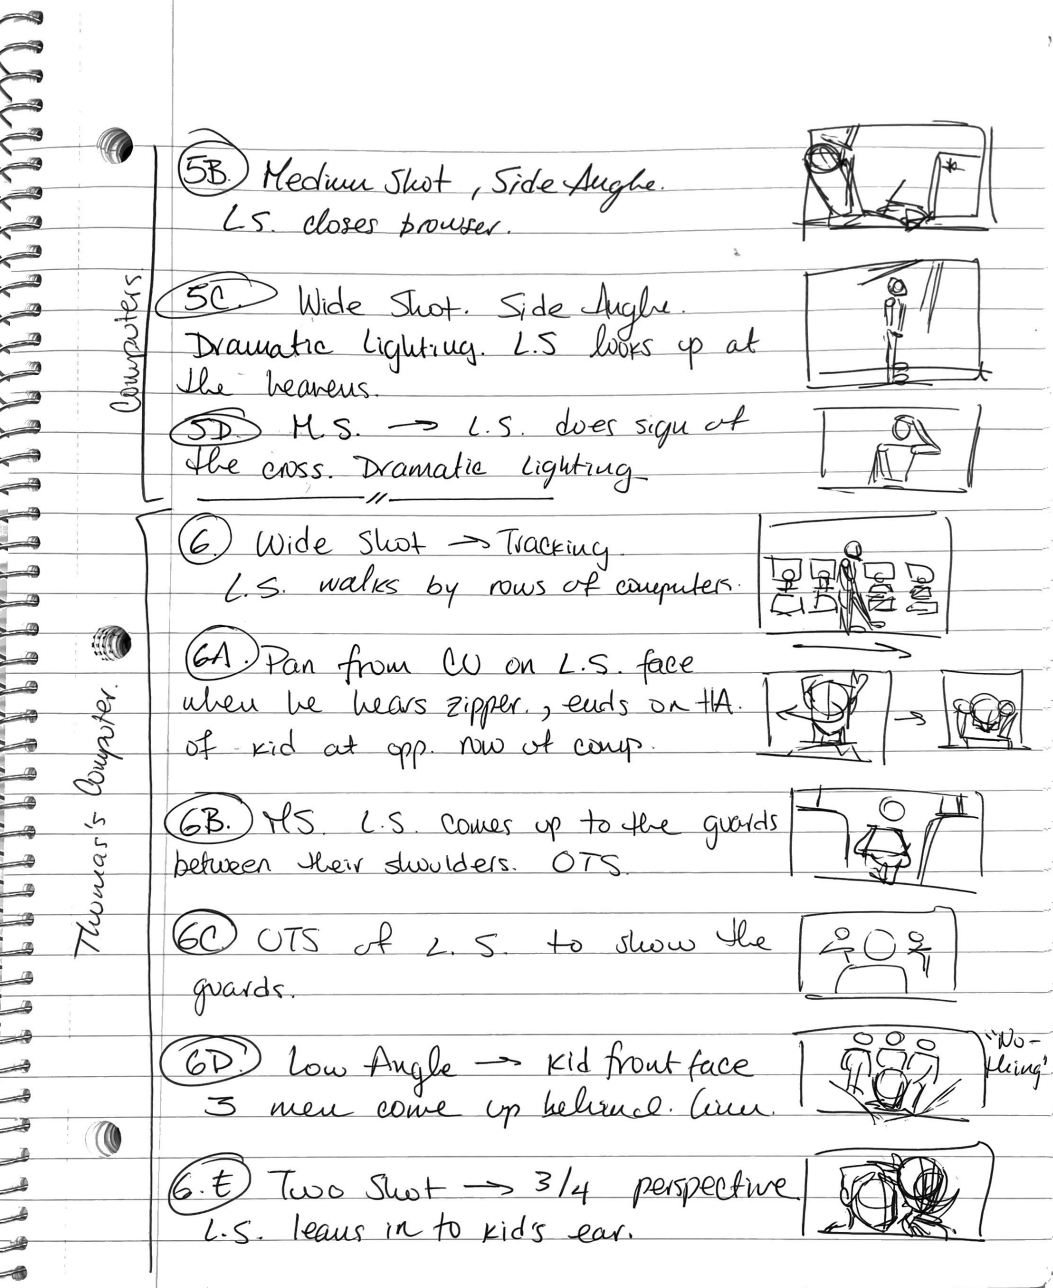 5B. Medium Shot, Side Anghe.
L.S. closes browser.
5C. Wide Shot. Side Anghe.
Dramatic Lighting. L.S looks up at
the heavens.
5D. M.S. → L.S. does sign of
the cross. Dramatic Lighting
Computers.
6. Wide Shot → Tracking.
L.S. walks by rows of computers.
6A. Pan from CU on L.S. face
when he hears zipper., ends on HA.
of kid at opp. row of comp.
6B. MS. L.S. comes up to the guards
between their shoulders. OTS.
6C OTS of L.S. to show the
guards.
6D. Low Angle → kid front face
3 men come up behind him.
"No-
thing"
6.E Two Shot → 3/4 perspective
L.S. leans in to kid's ear.
Thomas's Computer.